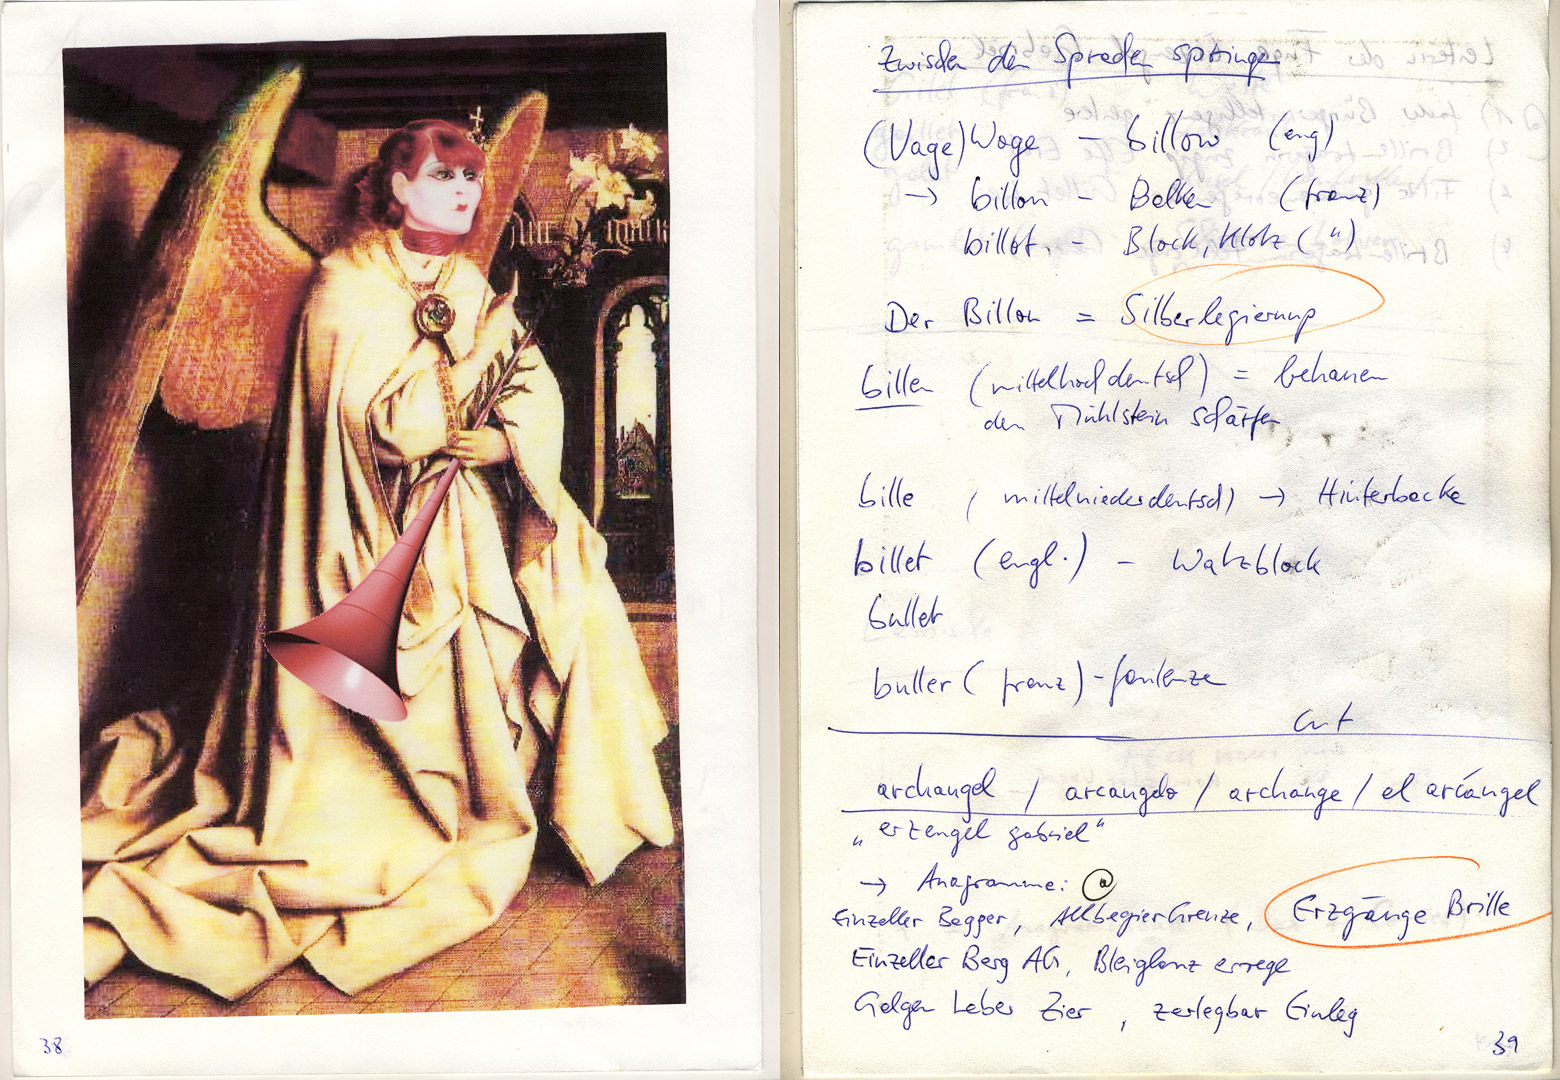 38
Zwischen den Sprachen springen
(Vage) Woge – billow (eng)
→ billon – Balken (franz)
billot, – Block, Klotz (")
Der Billon = Silberlegierung
billen (mittelhochdeutsch) = behauen
den Mühlstein schärfen
bille (mittelniederdeutsch) → Hinterbacke
billet (engl.) – Walzblock
bullet
buller (franz) – faulenze
cut
archangel / arcangelo / archange / el arcángel
„erzengel gabriel"
→ Anagramme: @
Einzeller Bagger, AllbegierGrenze, Erzgänge Brille
Einzeller Berg AG, Bleiglanz errege
Galgen Leber Zier, zerlegbar Einleg
39